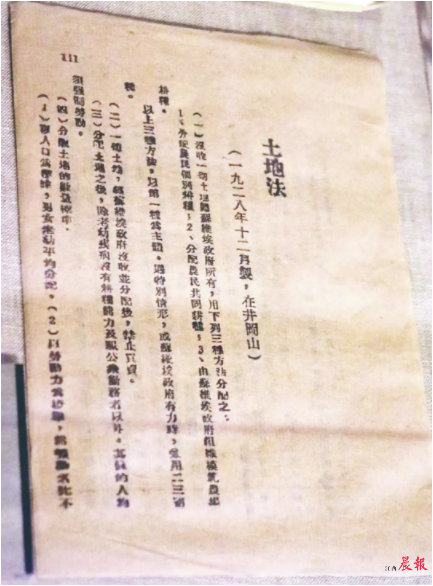 土地法
(一九二八年十二月製，在井岡山)
(一)沒收一切土地歸蘇維埃政府所有，用下列三種方法分配之：
1、分配農民個別耕種；2、分配農民共同耕種；3、由蘇維埃政府組織模範農場
耕種。
以上三種方法，以第一種為主體。遇特別情形，或蘇維埃政府有力時，兼用二三兩
種。
(二)一切土地，經蘇維埃政府沒收並分配後，禁止買賣。
(三)分配土地之後，除老幼疾病沒有耕種能力及服公衆勤務者以外，其餘的人均
須強制勞動。
(四)分配土地的數量標準：
(1)以人口為標準，男女老幼平均分配。(2)以勞動力為標準，能勞動者比不
111
江西晨報